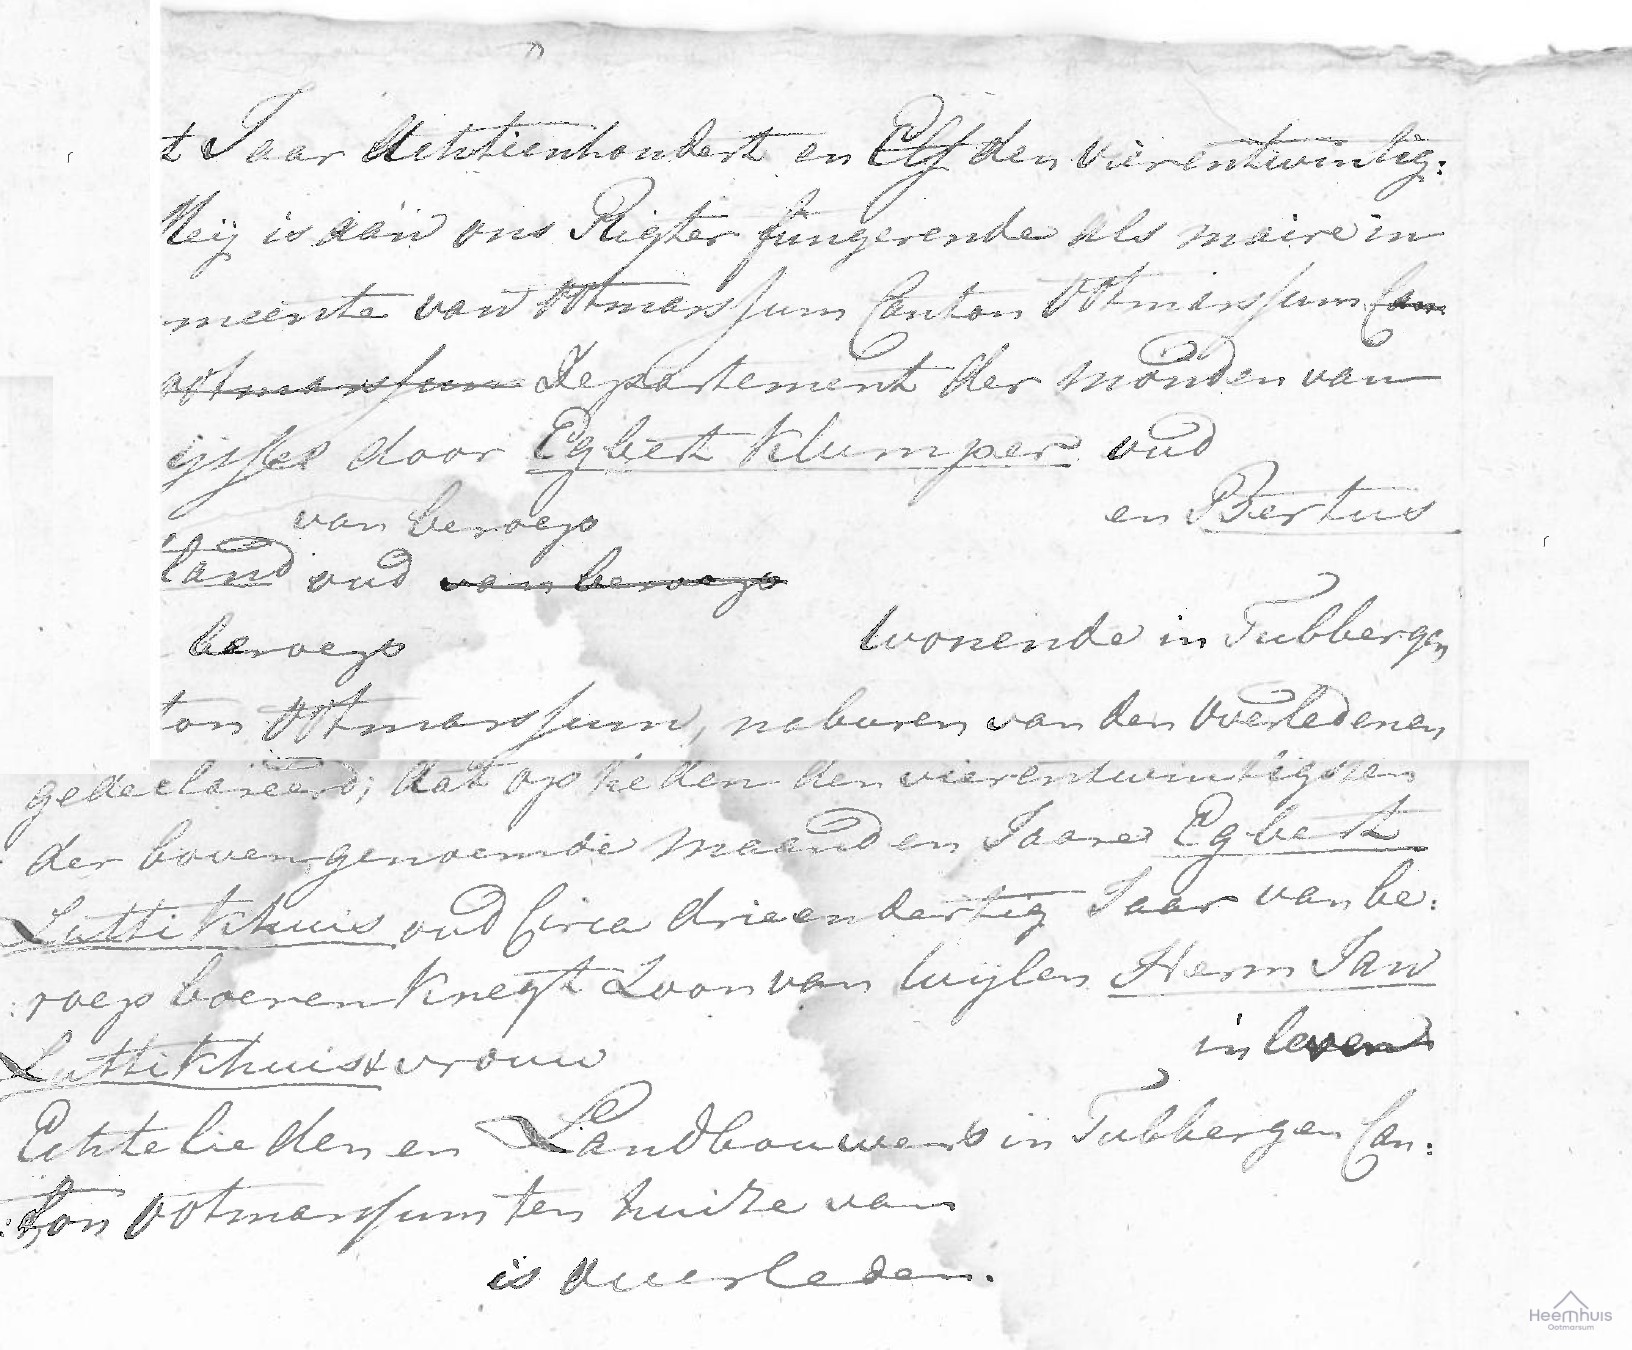 t Jaar Achtienhondert en Elf den vierentwintig:
Meij is aan ons Rigter fungerende als maire in
meente van Ootmarssum Canton Ootmarssum Can
ootmarssum Departement der monden van
ijssel door Egbert Klumper oud
van beroep en Bertus
land oud van beroep
beroep wonende in Tubbergen
ton Ootmarssum, naburen van den overledenen
gedeclareerd; dat op heden den vierentwintigsten
der bovengenoemde maand en Jaare Egbert
Luttikhuis oud Circa drieendertig Jaar van be:
:roep boeren Knegt Zoon van wijlen Herm Jan
Luttikhuis & vrouw in leven
Echtelieden en Landbouwers in Tubbergen Can:
:ton Ootmarssum ten huize van
is overleden.
Heemhuis
Ootmarsum